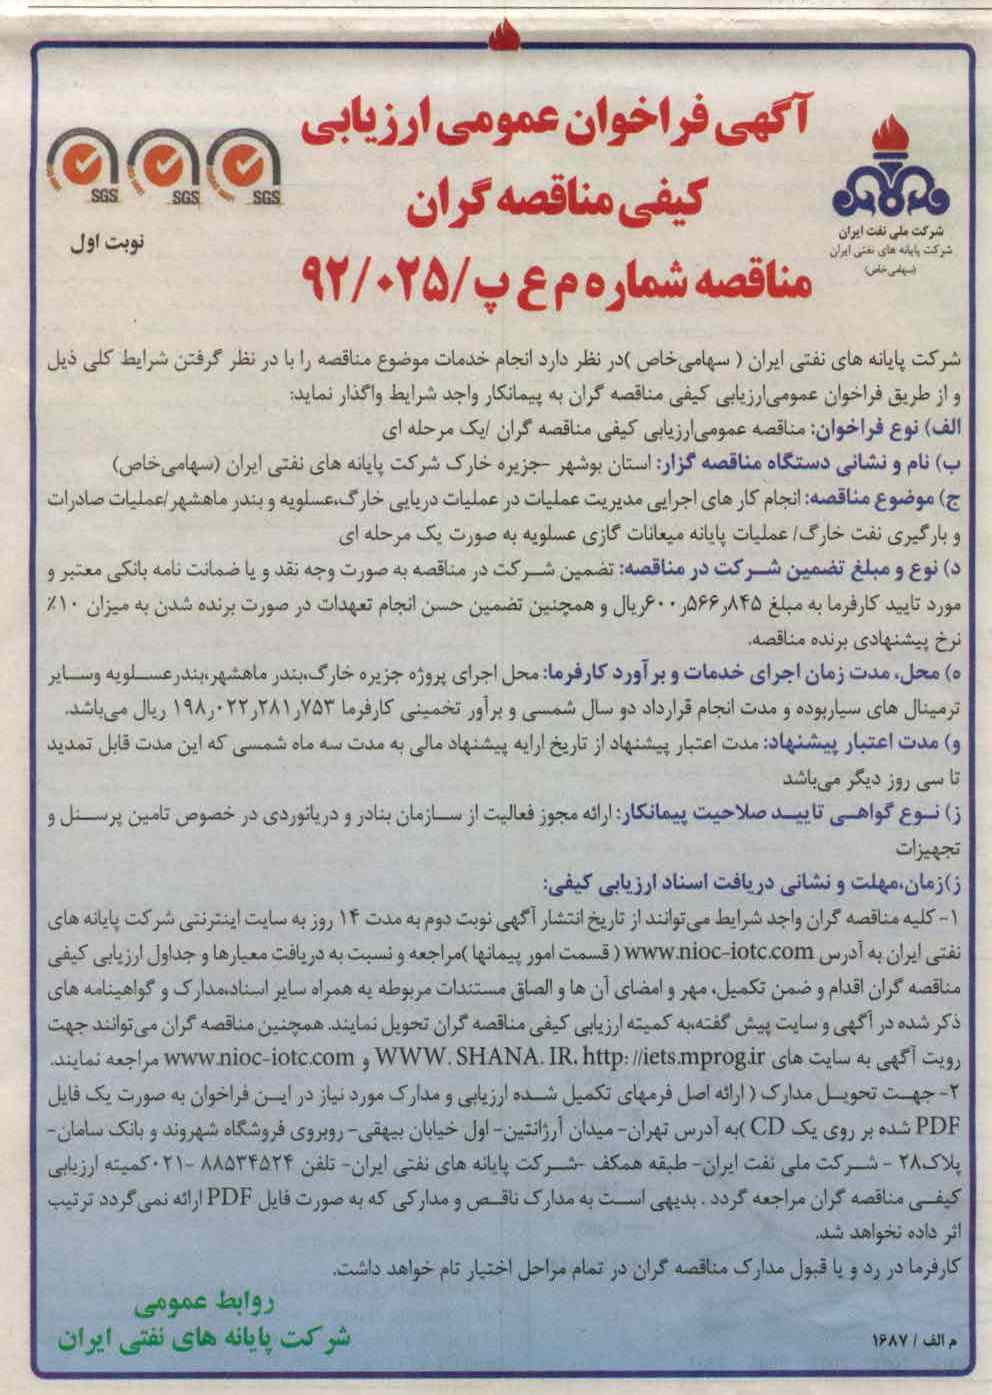 آگهی فراخوان عمومی ارزیابی
کیفی مناقصه گران
مناقصه شماره م ع پ/۹۲/۰۲۵
SGS SGS SGS
نوبت اول
شرکت ملی نفت ایران
شرکت پایانه های نفتی ایران
(سهامی خاص)
شرکت پایانه های نفتی ایران ( سهامی‌خاص )در نظر دارد انجام خدمات موضوع مناقصه را با در نظر گرفتن شرایط کلی ذیل
و از طریق فراخوان عمومی‌ارزیابی کیفی مناقصه گران به پیمانکار واجد شرایط واگذار نماید:
الف) نوع فراخوان: مناقصه عمومی‌ارزیابی کیفی مناقصه گران /یک مرحله ای
ب) نام و نشانی دستگاه مناقصه گزار: استان بوشهر -جزیره خارک شرکت پایانه های نفتی ایران (سهامی‌خاص)
ج) موضوع مناقصه: انجام کار های اجرایی مدیریت عملیات در عملیات دریایی خارگ،عسلویه و بندر ماهشهر/عملیات صادرات
و بارگیری نفت خارگ/ عملیات پایانه میعانات گازی عسلویه به صورت یک مرحله ای
د) نوع و مبلغ تضمین شرکت در مناقصه: تضمین شرکت در مناقصه به صورت وجه نقد و یا ضمانت نامه بانکی معتبر و
مورد تایید کارفرما به مبلغ ۸۴۵ر۵۶۶ر۶۰۰ریال و همچنین تضمین حسن انجام تعهدات در صورت برنده شدن به میزان ۱۰٪
نرخ پیشنهادی برنده مناقصه.
ه) محل، مدت زمان اجرای خدمات و برآورد کارفرما: محل اجرای پروژه جزیره خارگ،بندر ماهشهر،بندرعسلویه وسایر
ترمینال های سیاربوده و مدت انجام قرارداد دو سال شمسی و برآور تخمینی کارفرما ۷۵۳ر۲۸۱ر۰۲۲ر۱۹۸ ریال می‌باشد.
و) مدت اعتبار پیشنهاد: مدت اعتبار پیشنهاد از تاریخ ارایه پیشنهاد مالی به مدت سه ماه شمسی که این مدت قابل تمدید
تا سی روز دیگر می‌باشد
ز) نوع گواهی تایید صلاحیت پیمانکار: ارائه مجوز فعالیت از سازمان بنادر و دریانوردی در خصوص تامین پرسنل و
تجهیزات
ز)زمان،مهلت و نشانی دریافت اسناد ارزیابی کیفی:
۱- کلیه مناقصه گران واجد شرایط می‌توانند از تاریخ انتشار آگهی نوبت دوم به مدت ۱۴ روز به سایت اینترنتی شرکت پایانه های
نفتی ایران به آدرس www.nioc-iotc.com ( قسمت امور پیمانها )مراجعه و نسبت به دریافت معیارها و جداول ارزیابی کیفی
مناقصه گران اقدام و ضمن تکمیل، مهر و امضای آن ها و الصاق مستندات مربوطه به همراه سایر اسناد،مدارک و گواهینامه های
ذکر شده در آگهی و سایت پیش گفته،به کمیته ارزیابی کیفی مناقصه گران تحویل نمایند. همچنین مناقصه گران می‌توانند جهت
رویت آگهی به سایت های WWW. SHANA. IR, http: //iets.mprog.ir و www.nioc-iotc.com مراجعه نمایند.
۲- جهت تحویل مدارک ( ارائه اصل فرمهای تکمیل شده ارزیابی و مدارک مورد نیاز در این فراخوان به صورت یک فایل
PDF شده بر روی یک CD )به آدرس تهران- میدان آرژانتین- اول خیابان بیهقی- روبروی فروشگاه شهروند و بانک سامان-
پلاک۲۸ - شرکت ملی نفت ایران- طبقه همکف -شرکت پایانه های نفتی ایران- تلفن ۸۸۵۳۴۵۲۴ -۰۲۱کمیته ارزیابی
کیفی مناقصه گران مراجعه گردد . بدیهی است به مدارک ناقص و مدارکی که به صورت فایل PDF ارائه نمی‌گردد ترتیب
اثر داده نخواهد شد.
کارفرما در رد و یا قبول مدارک مناقصه گران در تمام مراحل اختیار تام خواهد داشت.
روابط عمومی
شرکت پایانه های نفتی ایران
م الف / ۱۶۸۷